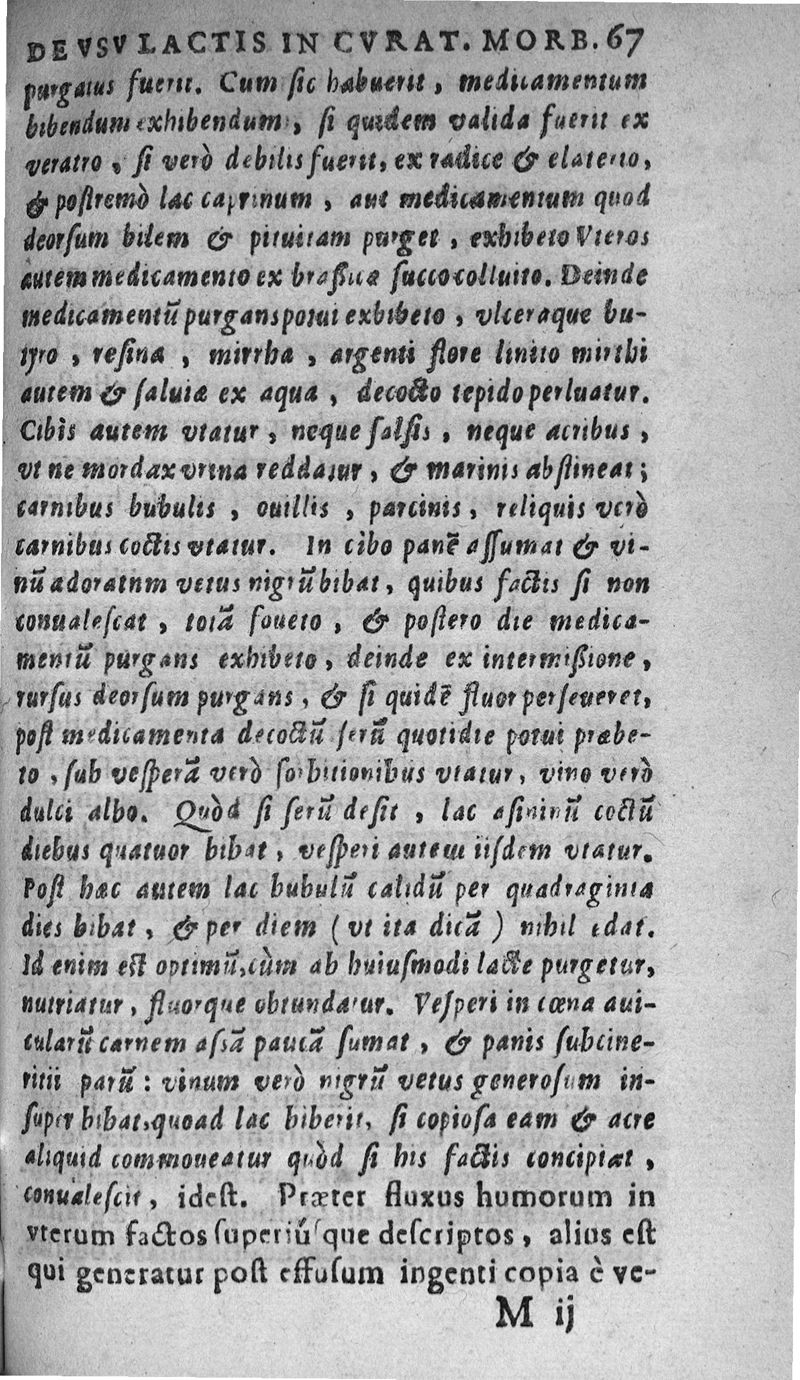 DE VSV LACTIS IN CVRAT. MORB. 67
purgatus fuerit. Cum sic habuerit, medicamentum
bibendum exhibendum, si quidem valida fuerit ex
veratro, si verò debilis fuerit, ex radice & elaterio,
& postremò lac caprinum, aut medicamentum quod
deorsum bilem & pituitam purget, exhibeto Vteros
autem medicamento ex brassica succo colluito. Deinde
medicamentū purgans potui exhibeto, vlceraque bu-
tyro, resina, mirrha, argenti flore linito mirthi
autem & saluia ex aqua, decocto tepido perluatur.
Cibis autem vtatur, neque salsis, neque acribus,
vt ne mordax vrina reddatur, & marinis abstineat;
carnibus bubulis, ouillis, porcinis, reliquis verò
carnibus coctis vtatur. In cibo panē assumat & vi-
nū adoratnm vetus nigrū bibat, quibus factis si non
conualescat, totā foueto, & postero die medica-
mentū purgans exhibeto, deinde ex intermissione,
rursus deorsum purgans, & si quidē fluor perseueret,
post medicamenta decoctū serū quotidie potui præbe-
to, sub vesperā verò sorbitionibus vtatur, vino verò
dulci albo. Quòd si serū desit, lac asininū coctū
diebus quatuor bibat, vesperi autem iisdem vtatur.
Post hac autem lac bubulū calidū per quadraginta
dies bibat, & per diem (vt ita dicā) nihil edat.
Id enim est optimū, cùm ab huiusmodi lacte purgetur,
nutriatur, fluorque obtundatur. Vesperi in cœna aui-
cularū carnem assā paucā sumat, & panis subcine-
ritii parū: vinum verò nigrū vetus generosum in-
super bibat, quoad lac biberit, si copiosa eam & acre
aliquid commoueatur quòd si his factis concipiat,
conualescit, idest. Præter fluxus humorum in
vterum factos superiùsque descriptos, alius est
qui generatur post effusum ingenti copia è ve-
M ij